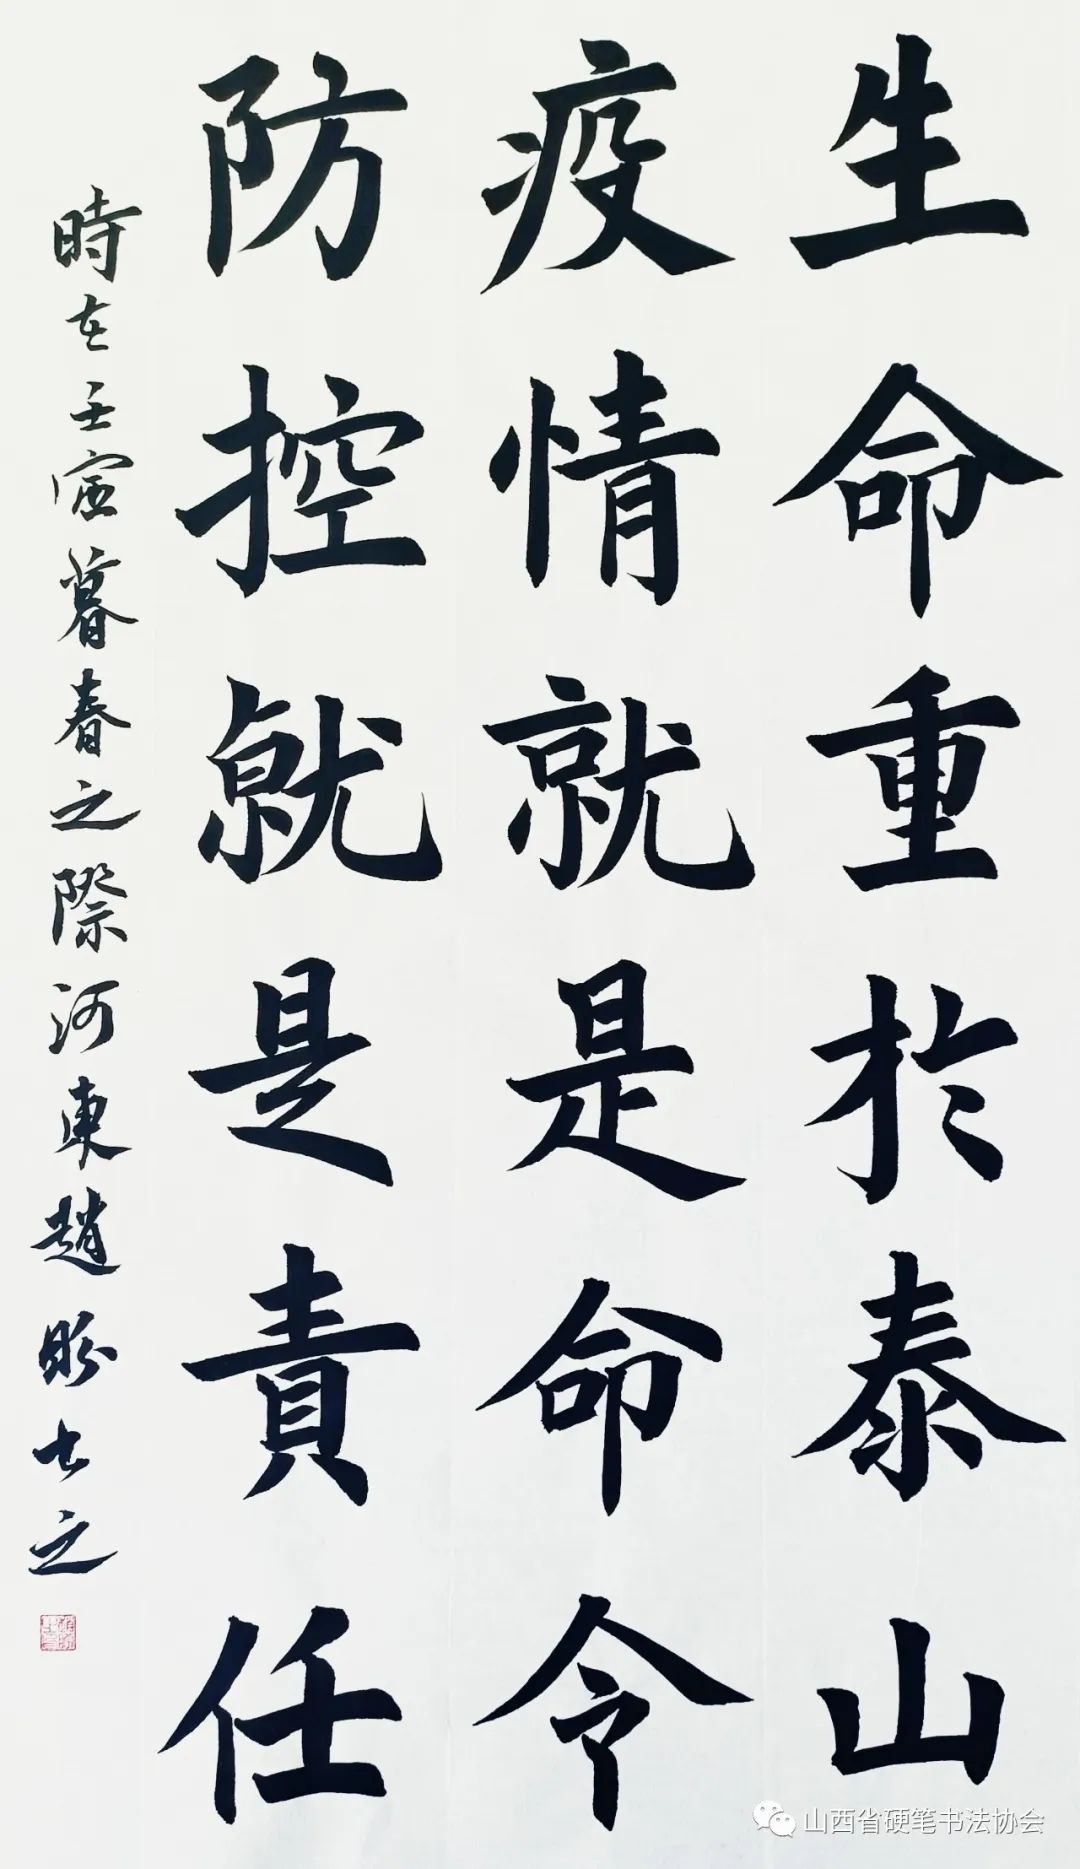 生命重於泰山
疫情就是命令
防控就是責任
時在壬寅暮春之際河東趙盼書之
山西省硬笔书法协会